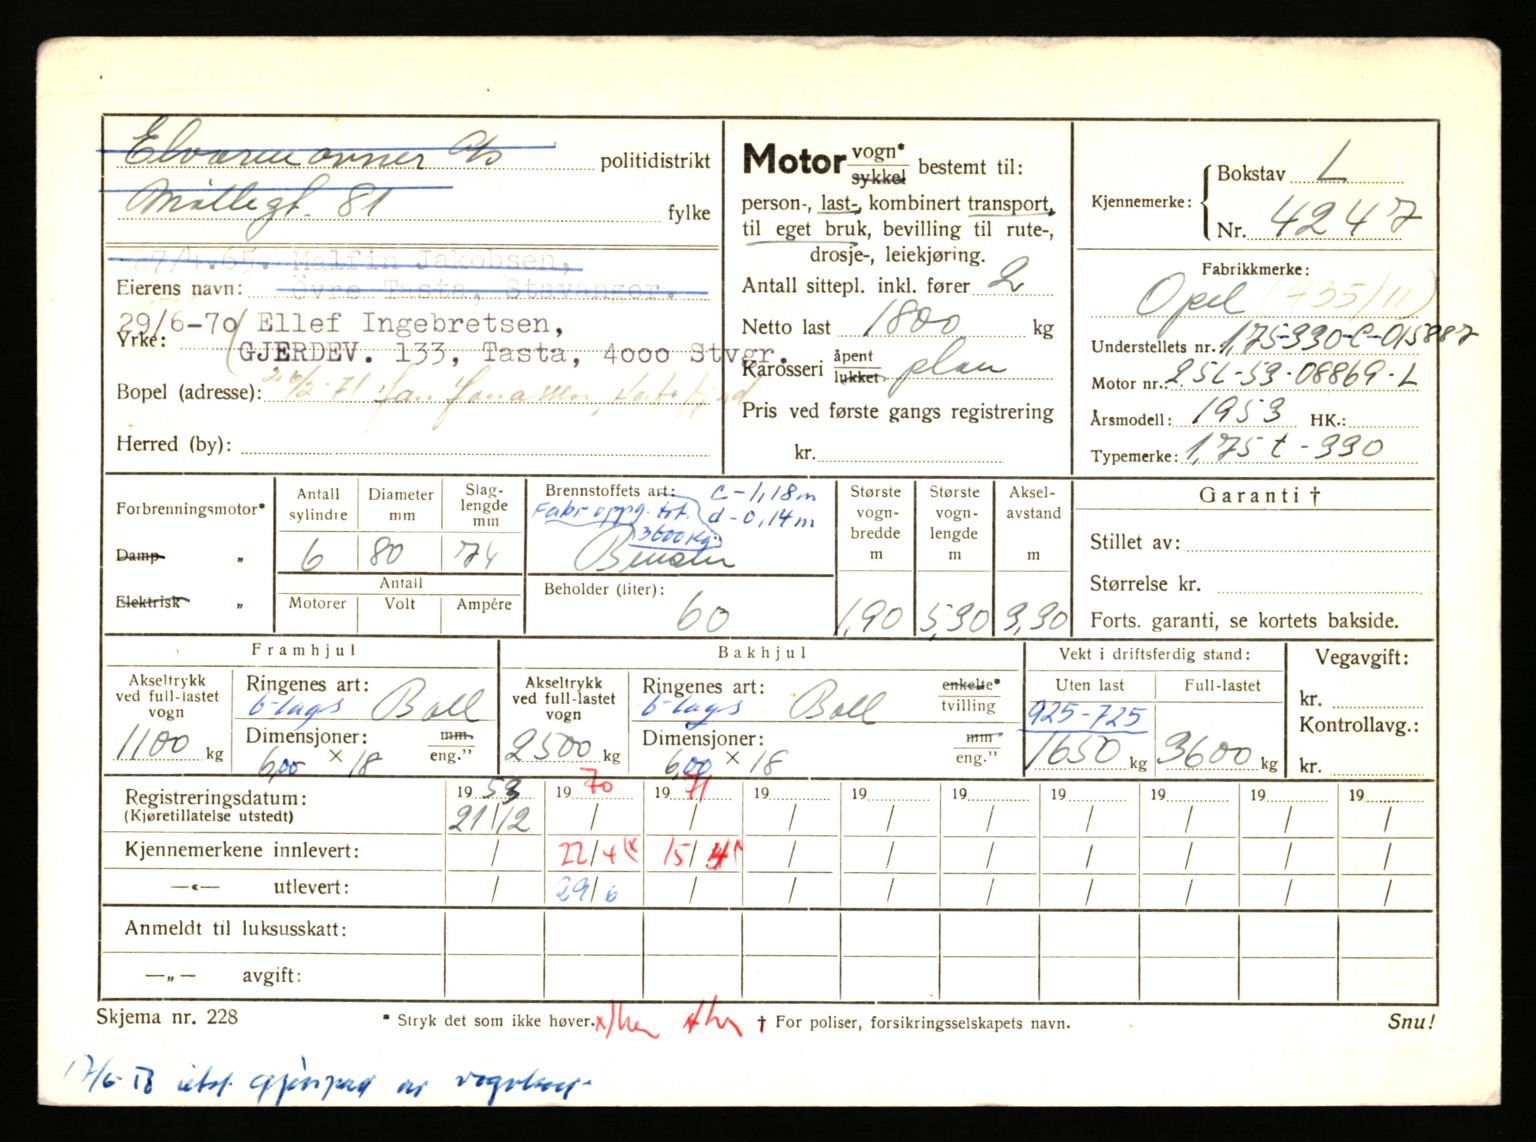 Elvarmeovner A/s politidistrikt
Møllegt. 81 fylke
27/4.65. Malfin Jakobsen,
Eierens navn: Övre Tasta, Stavanger.
29/6-70/ Ellef Ingebretsen,
Yrke: GJERDEV. 133, Tasta, 4000 Stvgr.
Bopel (adresse): Jan Jonassen,
Herred (by):
Motor vogn* sykkel bestemt til:
person-, last-, kombinert transport,
til eget bruk, bevilling til rute-,
drosje-, leiekjøring.
Antall sittepl. inkl. fører 2
Netto last 1800 kg
Karosseri åpent lukket plan
Pris ved første gangs registrering
kr.
Kjennemerke: Bokstav L
Nr. 4247
Fabrikkmerke:
Opel (435/11)
Understellets nr. 1,75-330-C-015887
Motor nr.: 25L-53-08869-L
Årsmodell: 1953 HK.:
Typemerke: 1,75 t - 330
Forbrenningsmotor*
Damp „
Elektrisk „
Antall sylindre 6
Diameter mm 80
Slag-lengde mm 74
Antall
Motorer Volt Ampére
Brennstoffets art: c - 1,18 m
Fabr. oppg. tot. d - 0,14 m
3600 kg.
Bensin
Beholder (liter):
60
Største vogn-bredde m 1,90
Største vogn-lengde m 5,30
Aksel-avstand m 3,30
Garanti †
Stillet av:
Størrelse kr.
Forts. garanti, se kortets bakside.
Framhjul
Akseltrykk ved full-lastet vogn 1100 kg
Ringenes art: 6-lags Ball
Dimensjoner: 6,00 × 18 mm eng.”
Bakhjul
Akseltrykk ved full-lastet vogn 2500 kg
Ringenes art: 6-lags Ball enkelte* tvilling
Dimensjoner: 6,00 × 18 mm eng.”
Vekt i driftsferdig stand:
Uten last Full-lastet
925-725
1650 kg 3600 kg
Vegavgift:
kr.
Kontrollavg.:
kr.
Registreringsdatum: 1953 1970 1971 19 19 19 19 19 19 19
(Kjøretillatelse utstedt) 21/12 / / / / / / / / /
Kjennemerkene innlevert: / 22/4 15/4 / / / / / / /
—«— utlevert: / 29/6 / / / / / / / /
Anmeldt til luksusskatt:
—„— avgift:
Skjema nr. 228
* Stryk det som ikke høver.
† For poliser, forsikringsselskapets navn.
Snu!